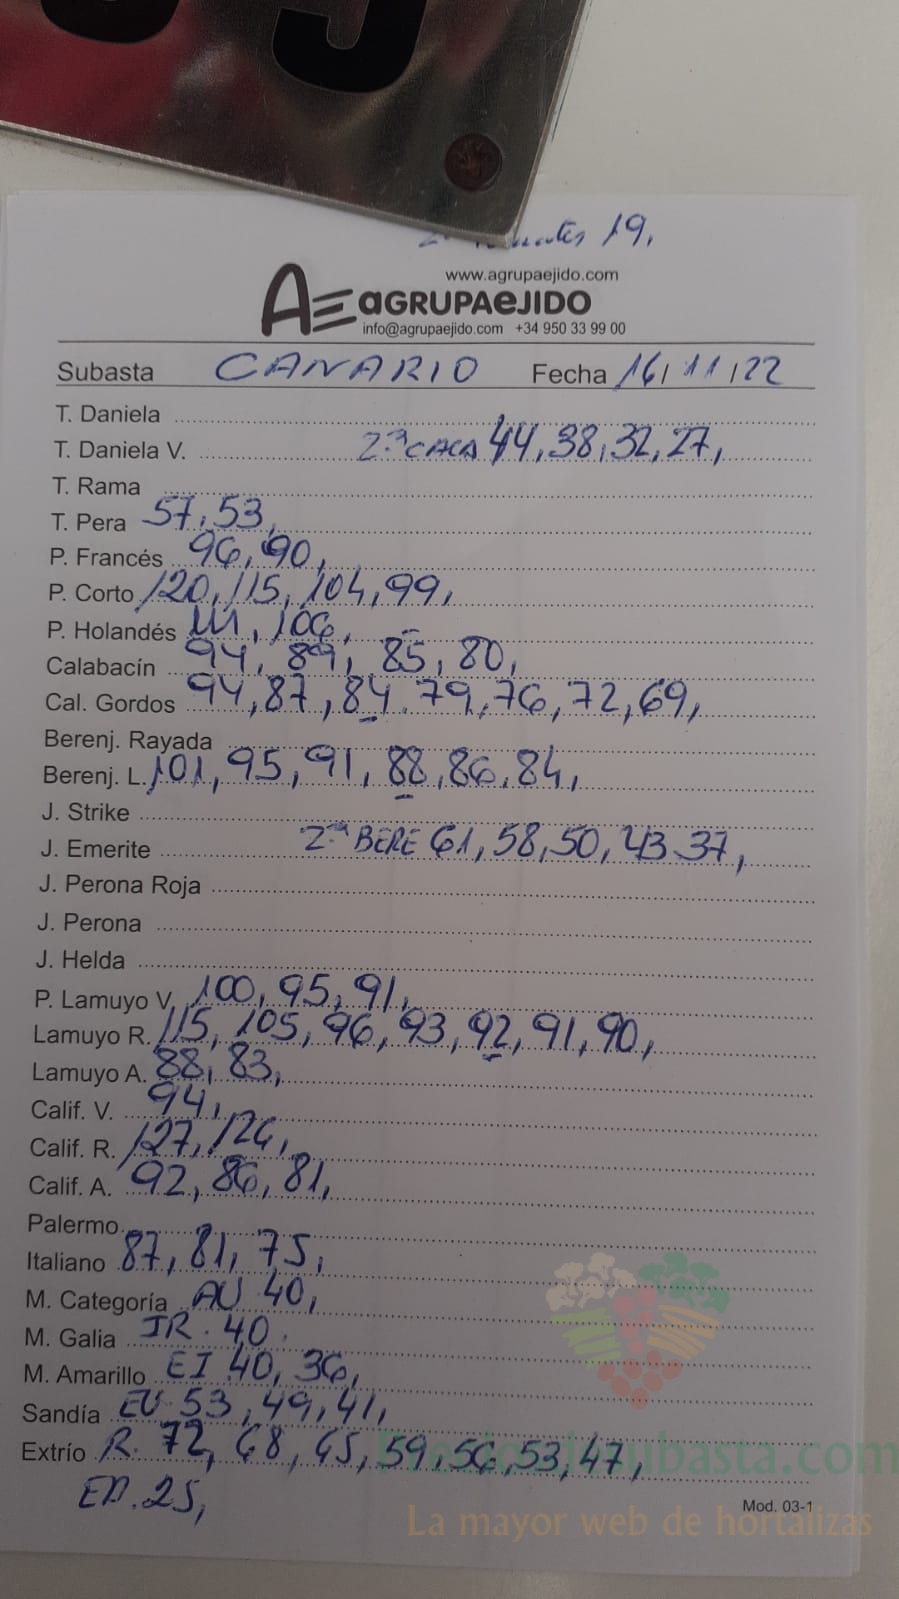 19,
www.agrupaejido.com
AE aGRUPAeJIDO
info@agrupaejido.com +34 950 33 99 00
Subasta CANARIO Fecha 16/11/22
T. Daniela
T. Daniela V. 2ª CACA 44, 38, 32, 27,
T. Rama
T. Pera 57, 53,
P. Francés 96, 90,
P. Corto 120, 115, 104, 99,
P. Holandés 111, 106,
Calabacín 94, 89, 85, 80,
Cal. Gordos 94, 87, 84, 79, 76, 72, 69,
Berenj. Rayada
Berenj. L. 101, 95, 91, 88, 86, 84,
J. Strike
J. Emerite 2ª BERE 61, 58, 50, 43 37,
J. Perona Roja
J. Perona
J. Helda
P. Lamuyo V. 100, 95, 91,
Lamuyo R. 115, 105, 96, 93, 92, 91, 90,
Lamuyo A. 88, 83,
Calif. V. 94,
Calif. R. 127, 126,
Calif. A. 92, 86, 81,
Palermo
Italiano 87, 81, 75,
M. Categoría AU 40,
M. Galia JR. 40.
M. Amarillo EI 40, 36,
Sandía EU 53, 49, 41,
Extrío R. 72, 68, 65, 59, 56, 53, 47,
ED. 25,
Mod. 03-1
Preciosdesubasta.com
La mayor web de hortalizas